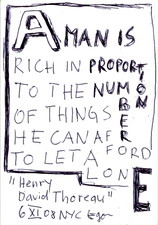 A MAN IS
RICH IN PROPORTION
TO THE NUMBER
OF THINGS
HE CAN AFFORD
TO LET ALONE
"Henry
David Thoreau"
6 XI 08 NYC